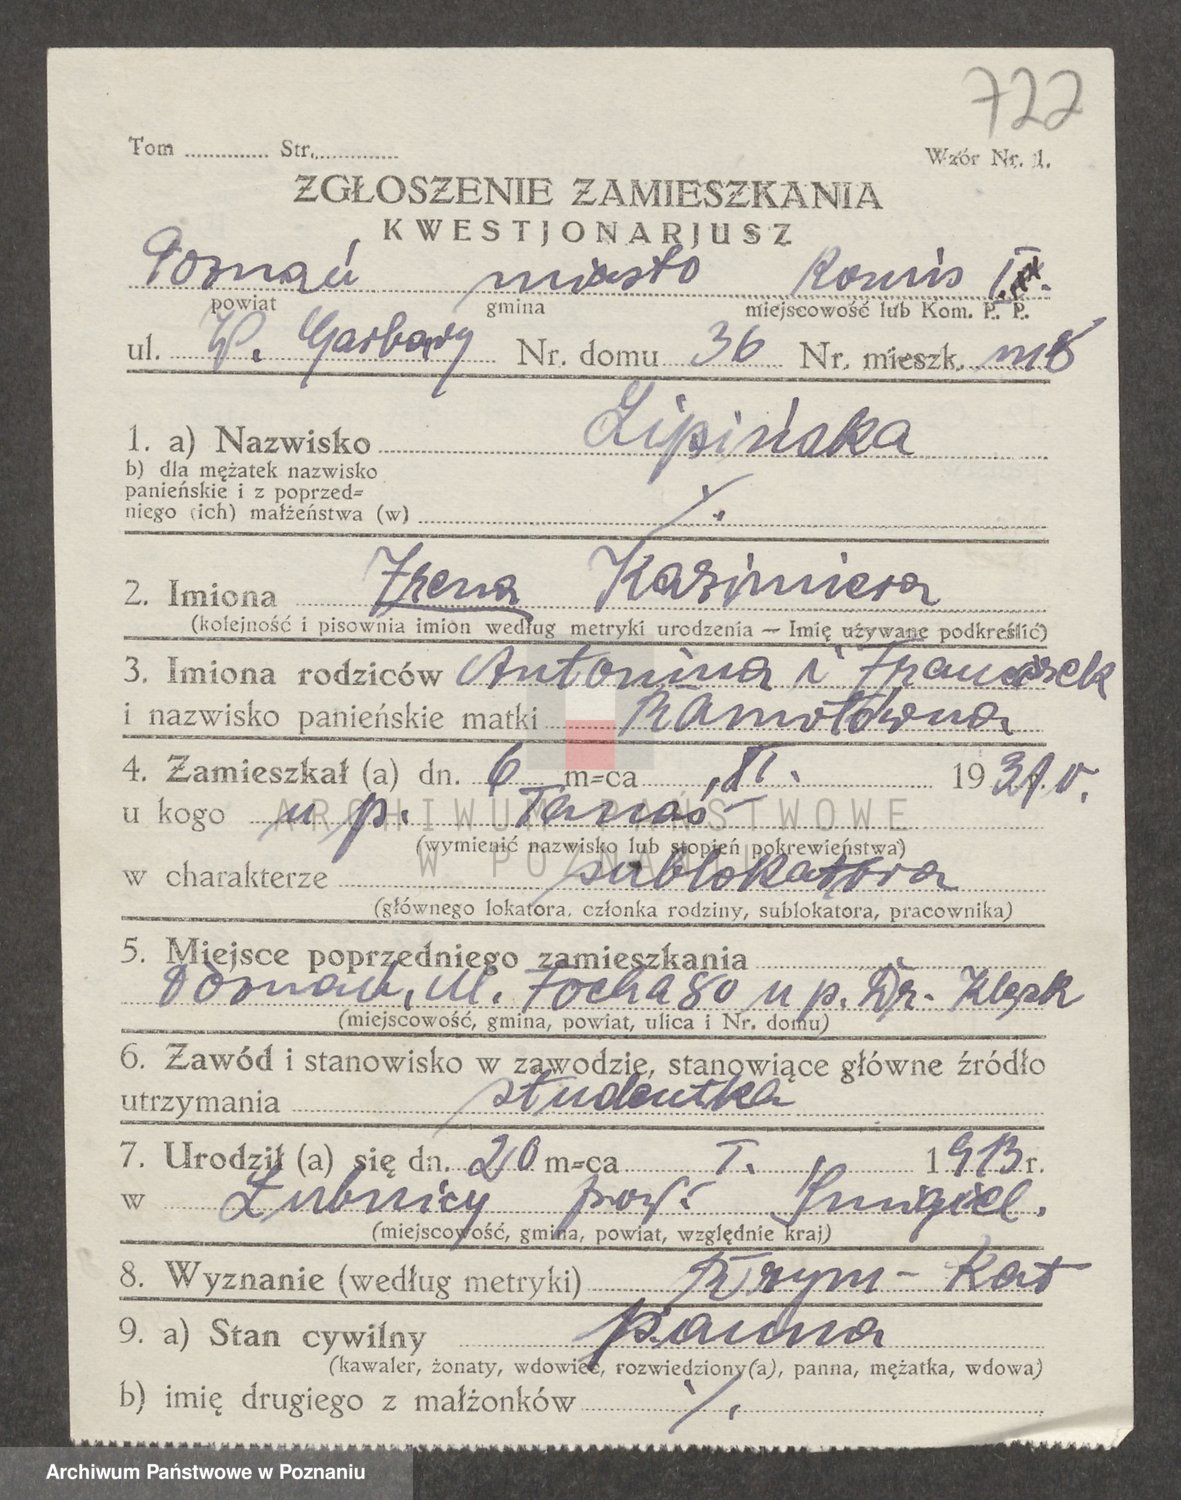 722
Tom ............. Str. .............
Wzór Nr. 1.
ZGŁOSZENIE ZAMIESZKANIA
KWESTJONARJUSZ
Poznań miasto Komis
powiat gmina miejscowość lub Kom. P. P.
ul. W. Garbary Nr. domu 36 Nr. mieszk. m8
1. a) Nazwisko Lipińska
b) dla mężatek nazwisko
panieńskie i z poprzed=
niego (ich) małżeństwa (w) ./.
2. Imiona Irena Kazimiera
(kolejność i pisownia imion według metryki urodzenia — Imię używane podkreślić)
3. Imiona rodziców Antonina i Franciszek
i nazwisko panieńskie matki
4. Zamieszkał (a) dn. 6 m=ca 19
u kogo u p. Tanaś
ARCHIWUM PAŃSTWOWE
(wymienić nazwisko lub stopień pokrewieństwa)
W POZNANIU
w charakterze sublokatora
(głównego lokatora, członka rodziny, sublokatora, pracownika)
5. Miejsce poprzedniego zamieszkania
Poznań, ul. Focha 80 u p. Dr.
(miejscowość, gmina, powiat, ulica i Nr. domu)
6. Zawód i stanowisko w zawodzie, stanowiące główne źródło
utrzymania studentka
7. Urodził (a) się dn. 20 m=ca I. 1913 r.
w Łubnicy pow. Śmigiel.
(miejscowość, gmina, powiat, względnie kraj)
8. Wyznanie (według metryki) Rzym-Kat
9. a) Stan cywilny panna
(kawaler, żonaty, wdowiec, rozwiedziony(a), panna, mężatka, wdowa)
b) imię drugiego z małżonków ./.
Archiwum Państwowe w Poznaniu